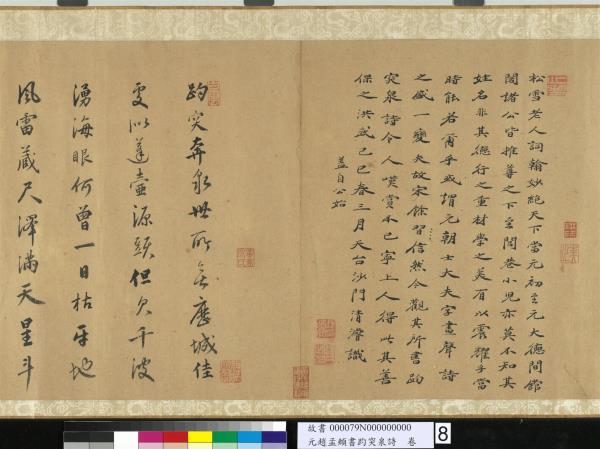 松雪老人詞翰妙絕天下當元初至元大德間館
閣諸公皆推尊之下至閭巷小兒亦莫不知其
姓名非其德行之重材學之美有以震耀乎當
時能若爾乎或指元朝士大夫字畫聲詩
之盛一變夫故宋餘習信然今觀其所書趵
突泉詩令人嘆賞不已寧上人得此其善
保之洪武己巳春三月天台沙門清濬識
蓋自公始
趵突奔泉世所無應城佳
更似蓬壺源頭但欠千波
湧海眼何曾一日枯平地
風雷藏尺澤滿天星斗
故書 000079N000000000
元趙孟頫書趵突泉詩 卷
8